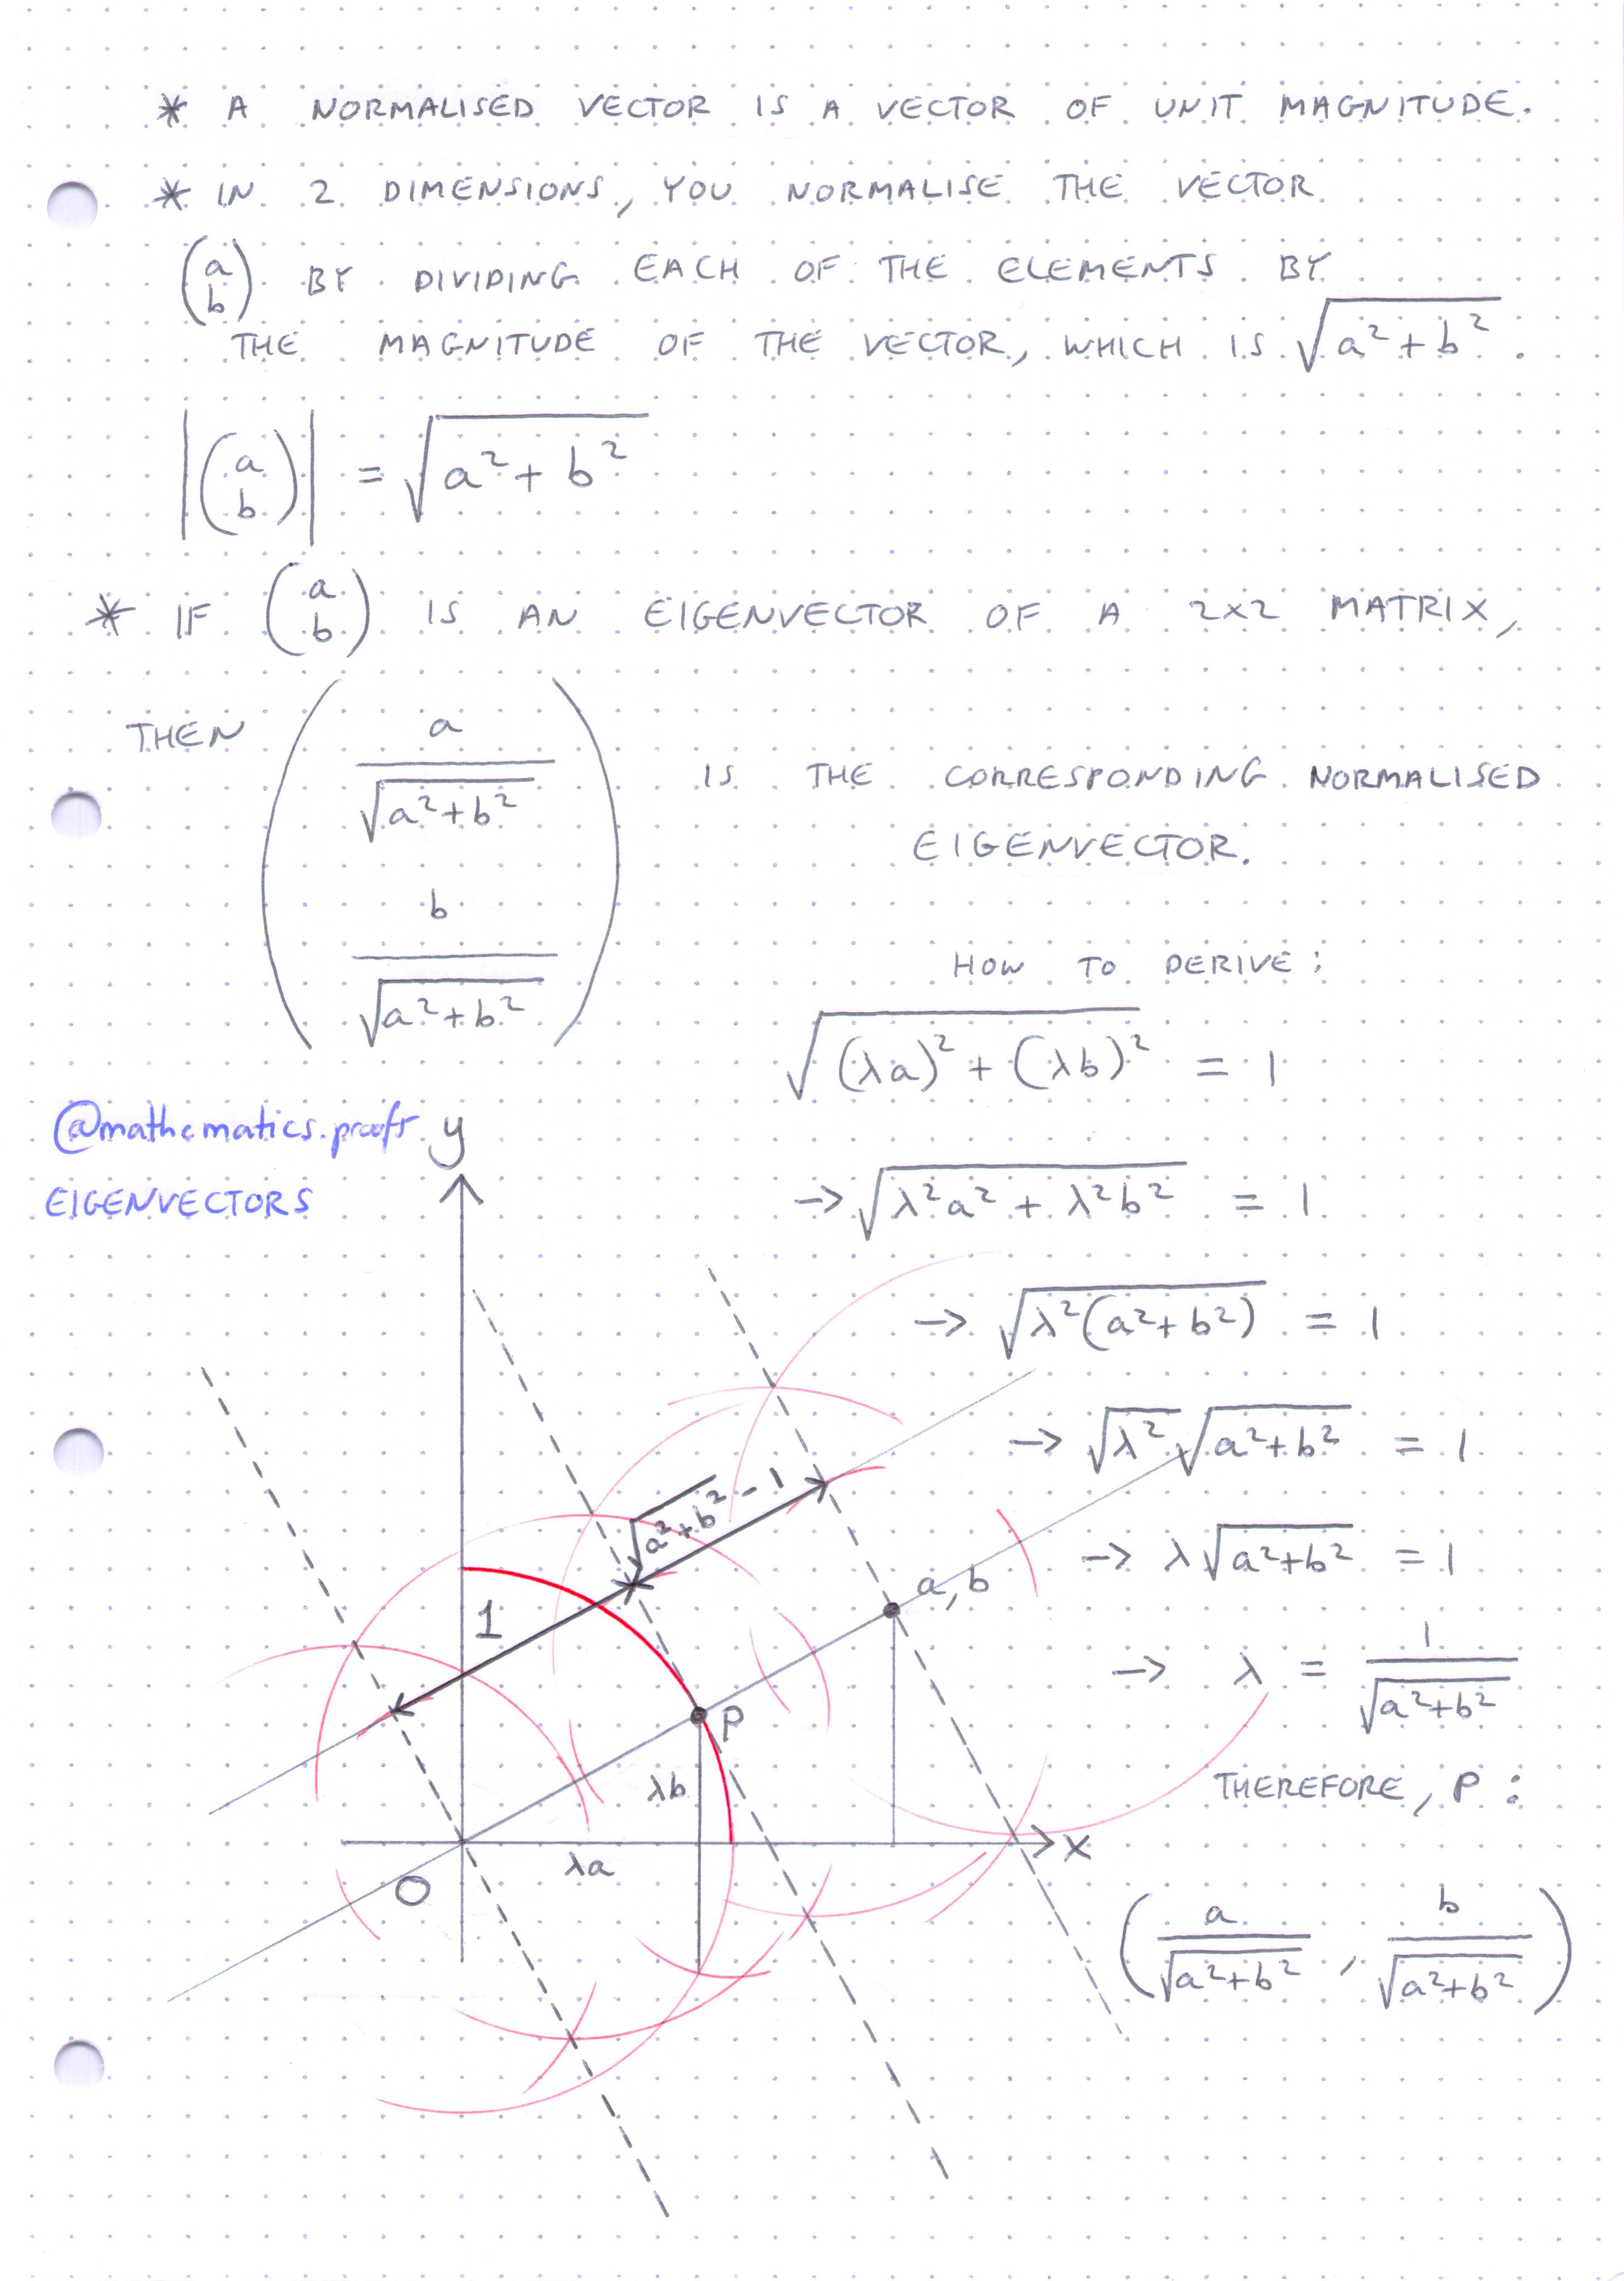 * A NORMALISED VECTOR IS A VECTOR OF UNIT MAGNITUDE.
* IN 2 DIMENSIONS, YOU NORMALISE THE VECTOR
(a b) BY DIVIDING EACH OF THE ELEMENTS BY
THE MAGNITUDE OF THE VECTOR, WHICH IS √(a²+b²).
|(a b)| = √(a²+b²)
* IF (a b) IS AN EIGENVECTOR OF A 2x2 MATRIX,
THEN (a/√(a²+b²) b/√(a²+b²)) IS THE CORRESPONDING NORMALISED
EIGENVECTOR.
HOW TO DERIVE:
√((λa)² + (λb)²) = 1
@mathematics.proofs
EIGENVECTORS
→ √(λ²a² + λ²b²) = 1
→ √(λ²(a²+b²)) = 1
→ √(λ²)√(a²+b²) = 1
→ λ√(a²+b²) = 1
→ λ = 1/√(a²+b²)
THEREFORE, P:
(a/√(a²+b²), b/√(a²+b²))
y
√(a²+b²) - 1
1
a,b
P
λb
λa
x
O